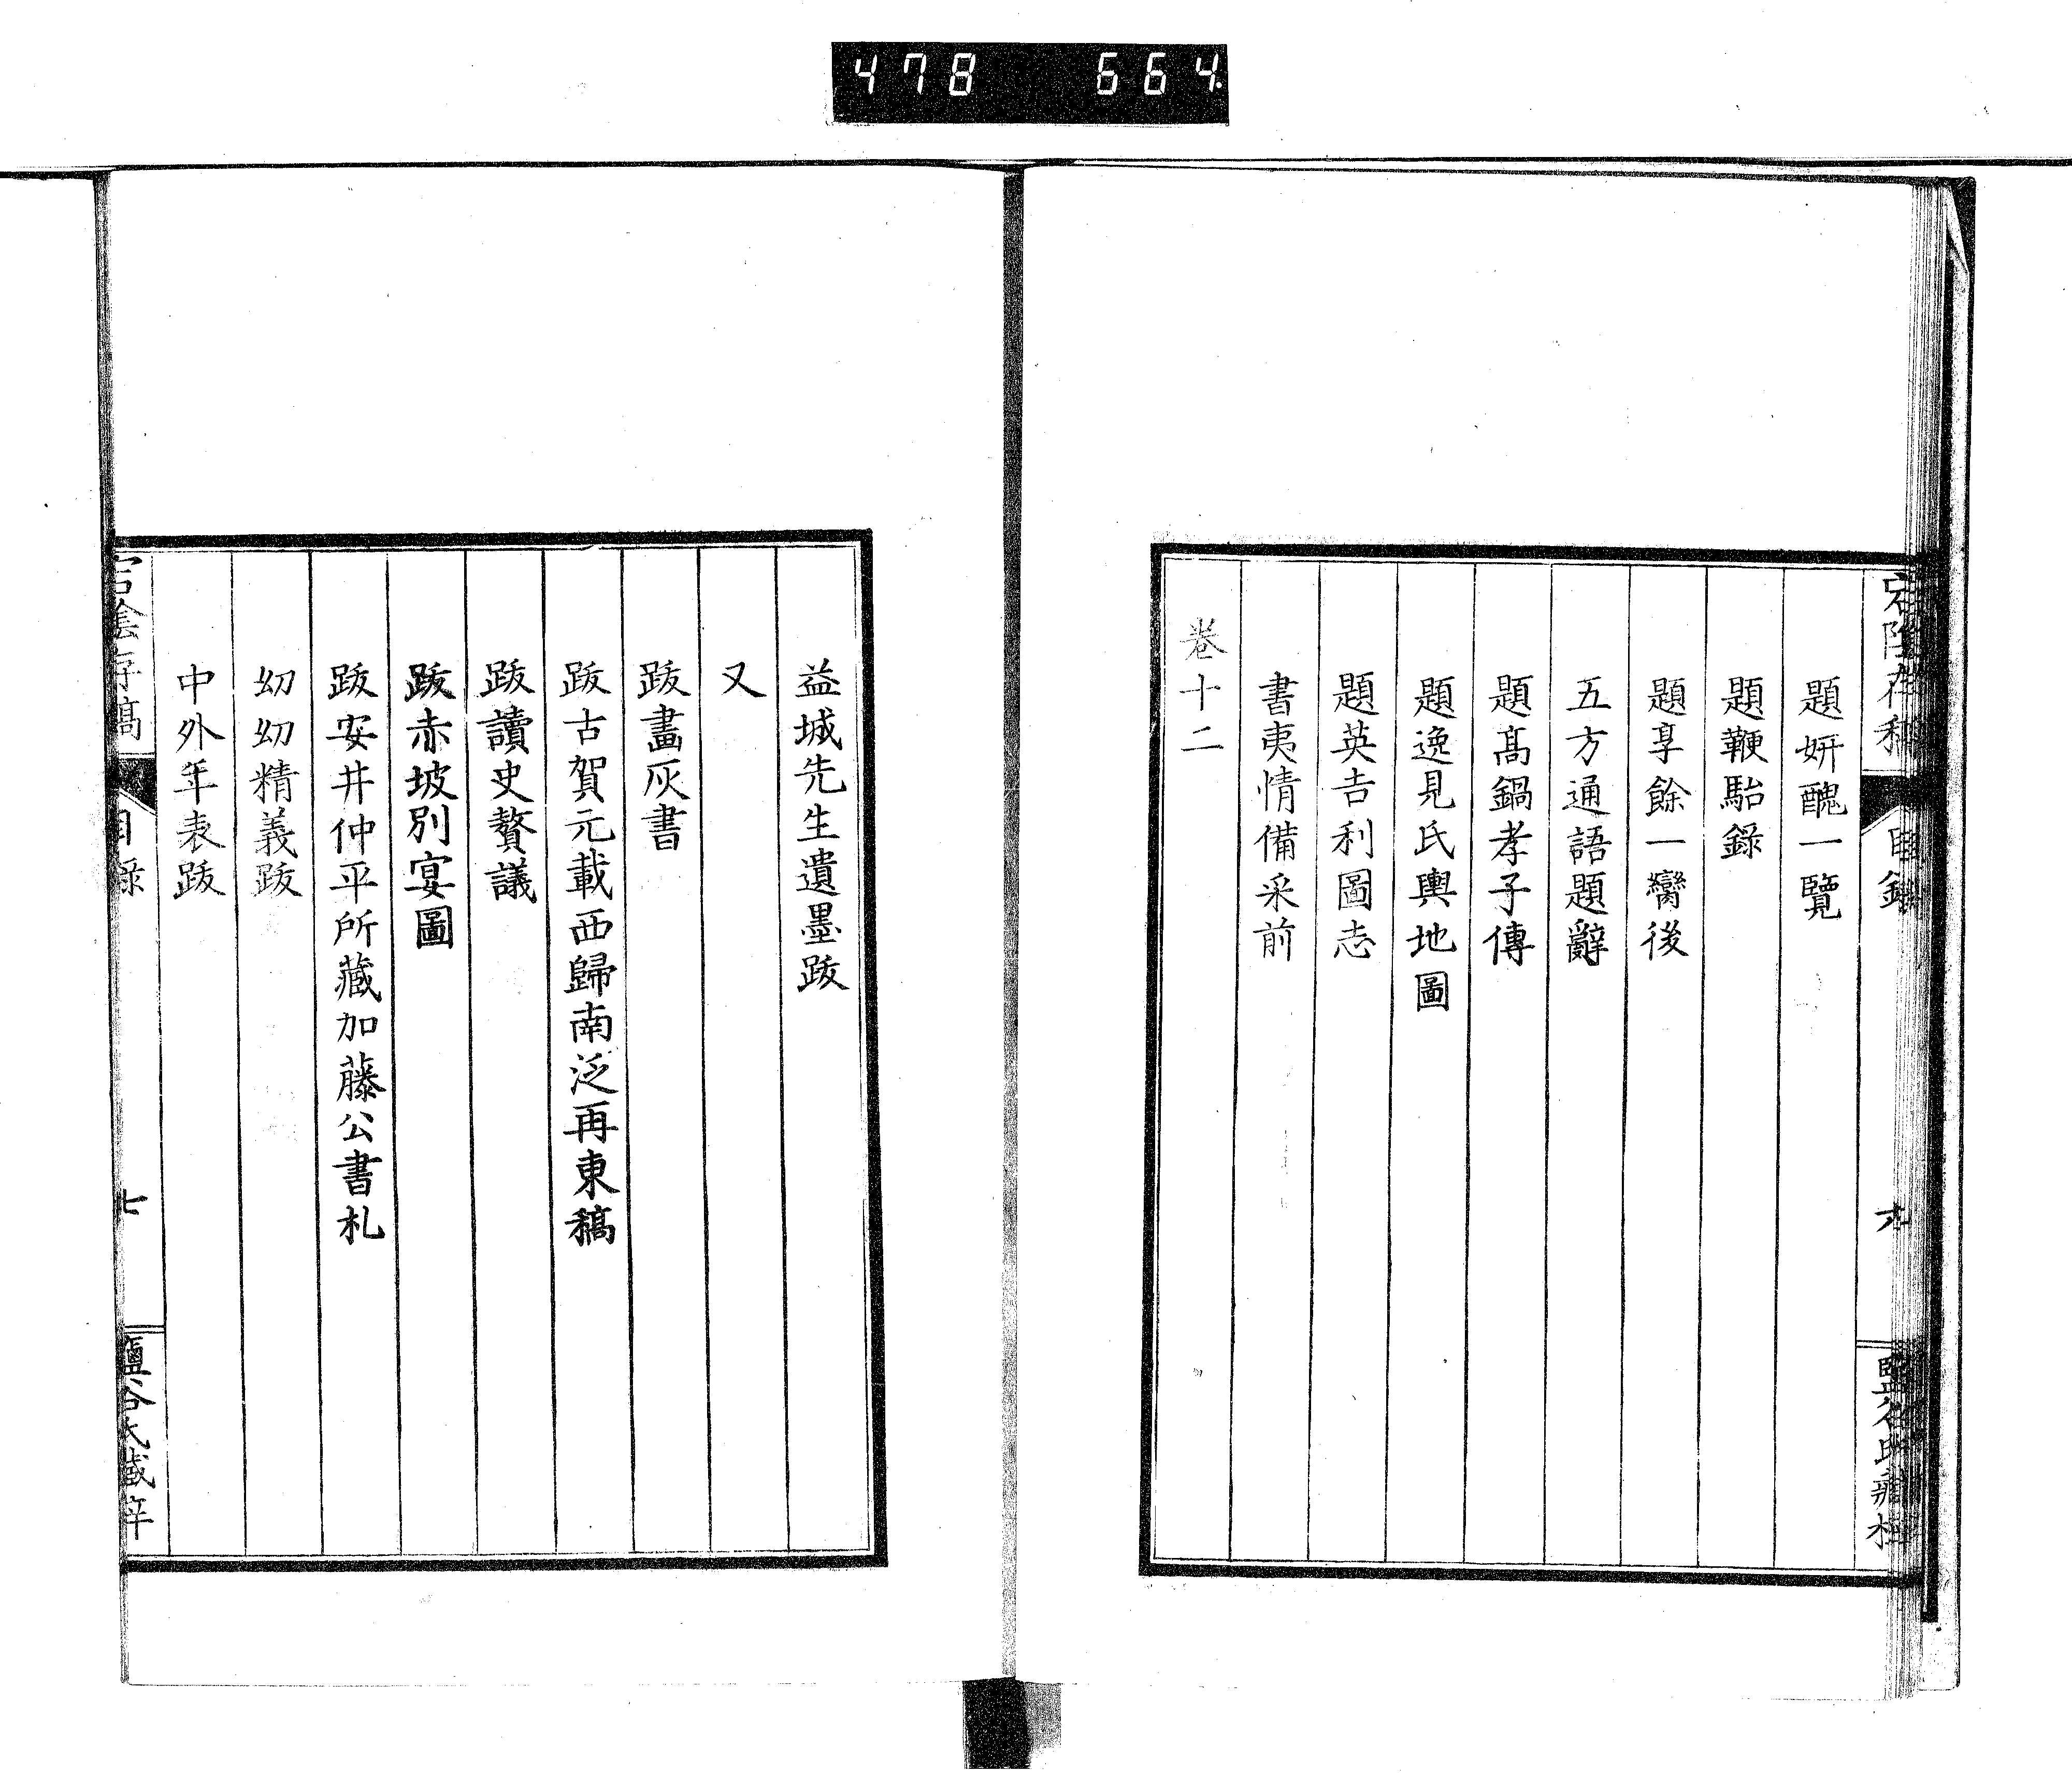 478 664
題妍醜一覽
題鞭駘錄
題享餘一臠後
五方通語題辭
題高鍋孝子傳
題逸見氏輿地圖
題英吉利圖志
書夷情備采前
卷十二
益城先生遺墨跋
又
跋畫灰書
跋古賀元載西歸南泛再東稿
跋讀史贅議
跋赤坡別宴圖
跋安井仲平所藏加藤公書札
幼幼精義跋
中外年表跋
目錄
七